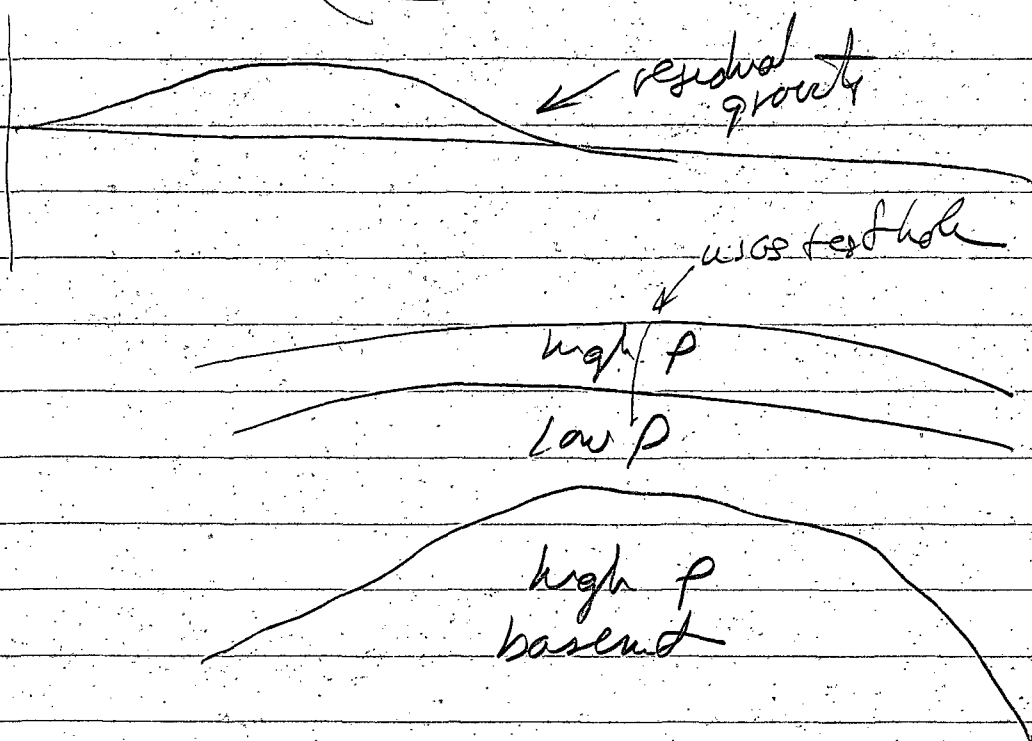 residual
gravity
USGS test hole
high ρ
Low ρ
high ρ
basement